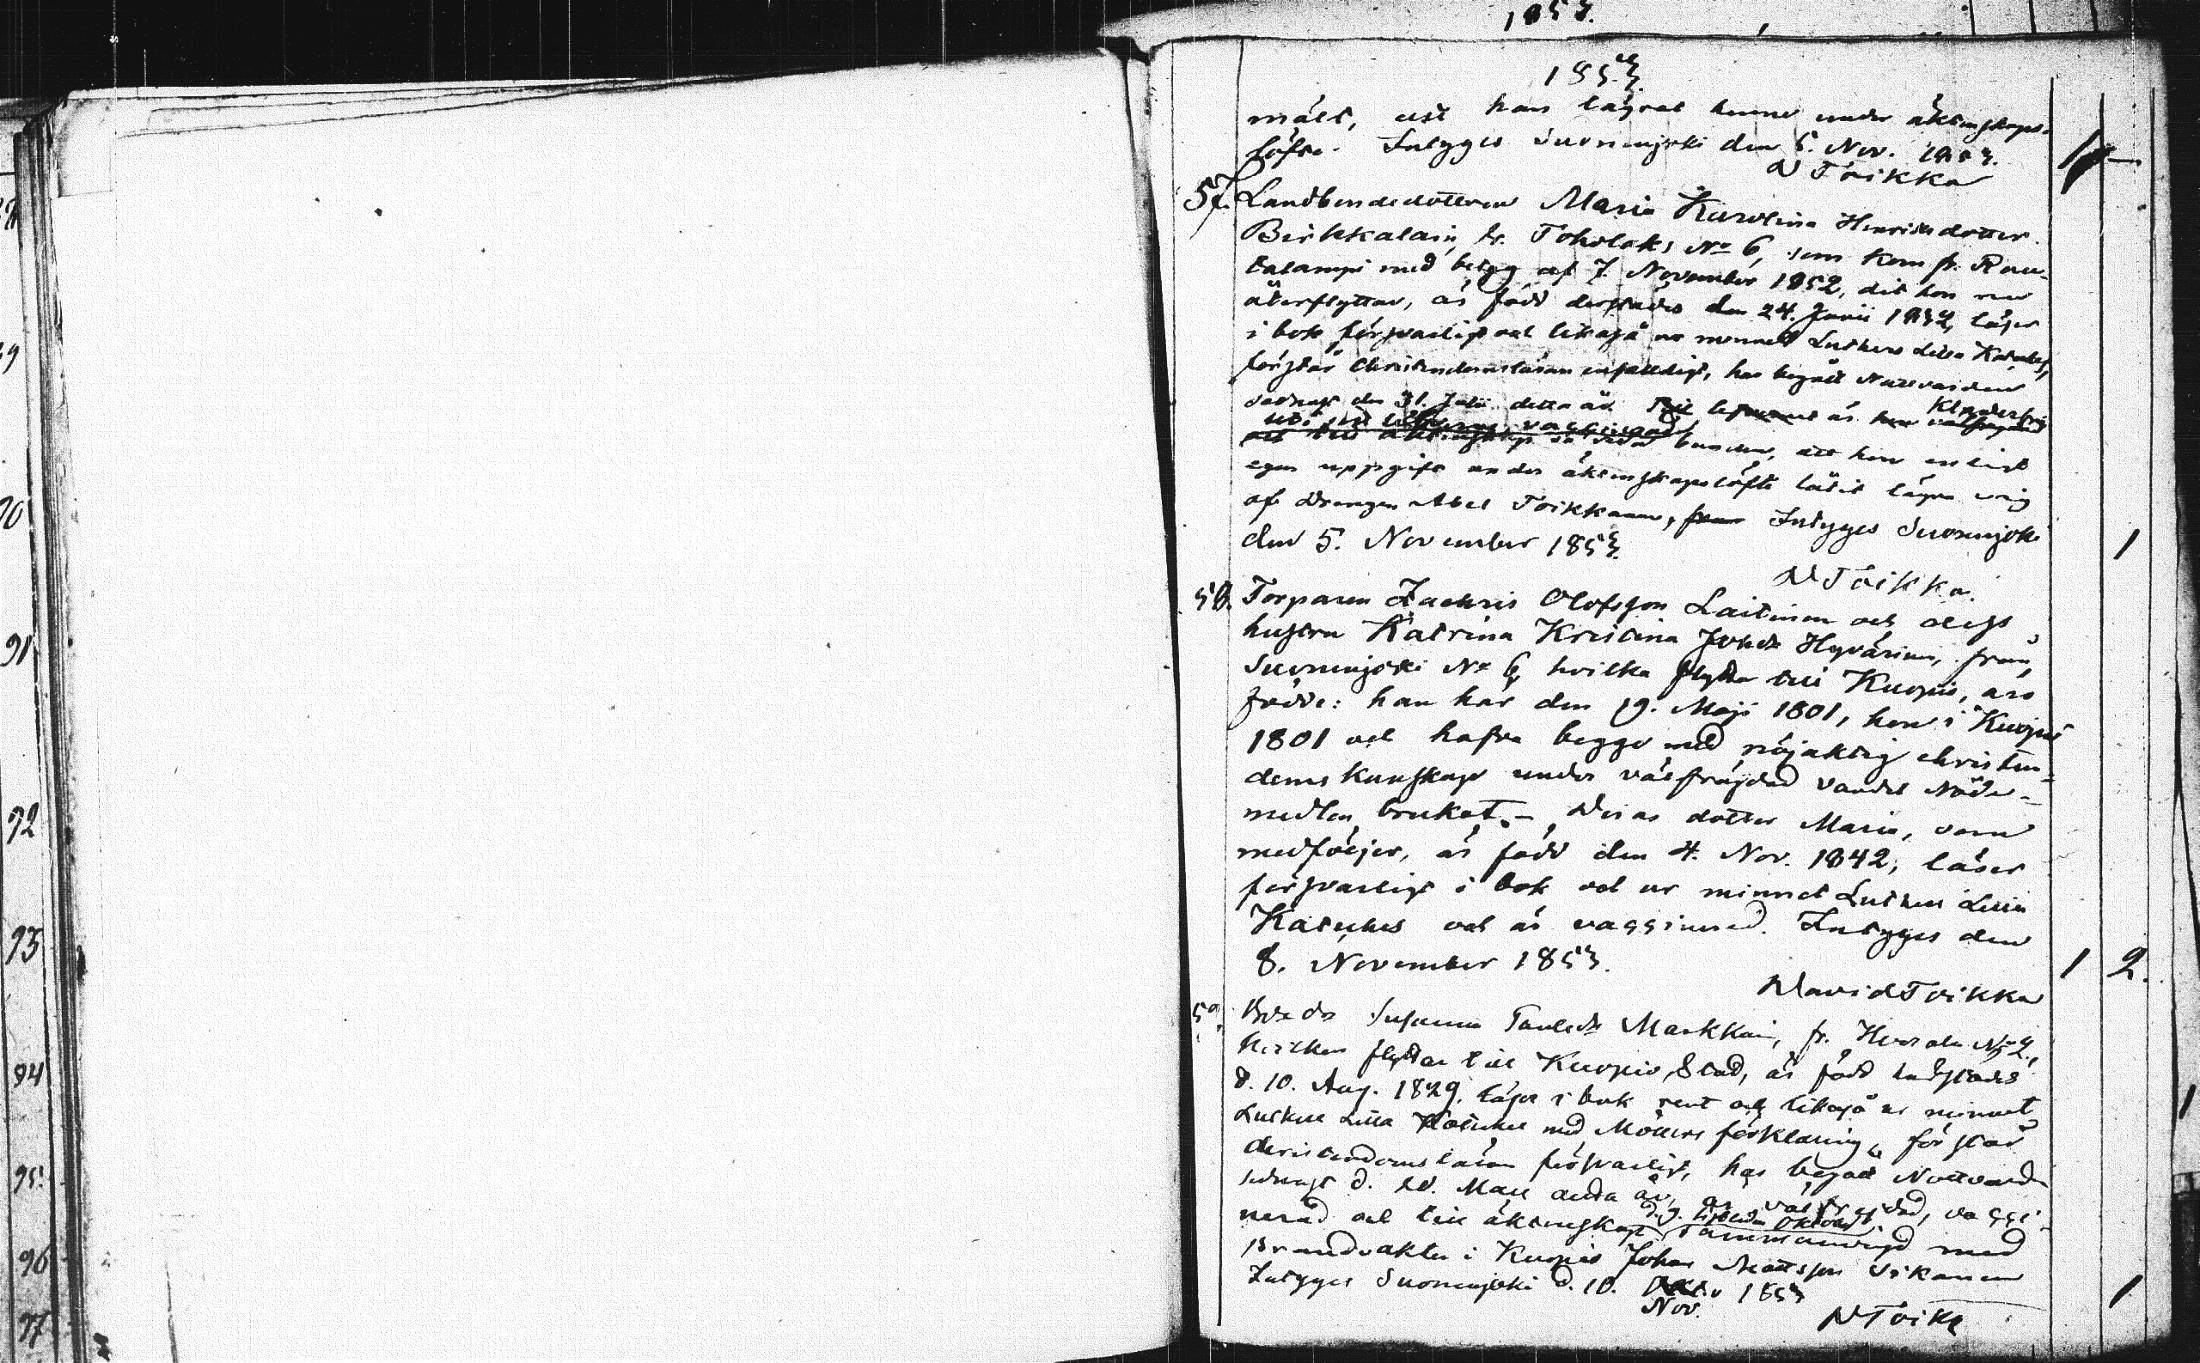 1853.
1853.
mält, att han lägrat henne under äktenskaps-
löfte. Intygas Suonenjoki den 5. Nov. 1853.
D Toikka 1
57. Landbondedottren Maria Karolina Henriksdotter
Birkkalain, fr. Toholaks No 6, som kom fr. Rau-
talampi med betyg af 7 November 1852, dit hon nu
återflyttar, är född derstädes den 24. Junii 1832, läser
i bok försvarligt och likaså ur minnet Luthers Lilla Kateches,
förstår Christendomsläran enfaldigt, har begått Nattvarden
sednast den 31. Julii detta år.
hon enligt
egen uppgift under äktenskapslöfte låtit lägra sig
af Drengen Abel Toikkanen, Intygas Suonenjoki
den 5. November 1853. 1
D Toikka.
58. Torparen Zachris Olofsson Laitinen och dess
hustru Katrina Kristina Johsdr Hyvärinen, från
Suonenjoki No 6, hvilka flytta till Kuopio, äro
födde: han här den 19. Maji 1801, hon i Kuopio
1801 och hafva begge med nöjaktig christen-
doms kunskap under välfrägdad vandel Nåde-
medlen brukat. – Deras dotter Maria, som
medföljer, är född den 4. Nov. 1842, läser
försvarligt i bok och ur minnet Luthers Lilla
Kateches och är vaccinerad. Intygas den
8. November 1853. 1 2.
David Toikka
59. Susanna Paulsdr Markkain, fr. No 2,
hvilken flyttar till Kuopio Stad, är född härstädes
d. 10. Aug. 1829, läser i bok rent och likaså ur minnet
Luthers Lilla Kateches med Möllers förklaring, förstår
christendomsläran försvarligt, har begått Nattvarden
sednast d. Maji detta år, är välfrägdad, vacci-
nerad och till äktenskap med
Brandvakten i Kuopio Johan Mattsson
Intygas Suonenjoki d. 10. 1853 1
Nov.
D Toikka
89
90
91
92
93
94
95
96
97